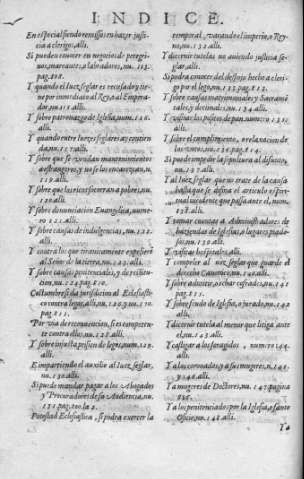 INDICE.
En especial siendo remisso en hazer justicia
a clerigo, alli.
Si puede conocer en negocios de peregri-
nos, mareantes, o labradores, nu. 115.
pag. 808.
Y quando el luez seglar es recusado y tie-
ne por inmediato al Rey, o al Empera-
dor, nu. 115. alli.
Y sobre patronazgo de Iglesia, num. 116.
alli.
Y quando entre juezes seglares ay contien-
da, nu. 117. alli.
Y sobre que se vendan mantenimientos
a estrangeros, y no se los encarezcan, n.
119. alli.
Y sobre que los ricos socorran a pobres, nu.
120. alli.
Y sobre denunciacion Euangelica, nume-
ro 121. alli.
Y sobre causas de indulgencias, nu. 122.
alli.
Y contra los que tiranicamente expelieren
al Señor de la tierra, nu. 123. alli.
Y sobre causas penitenciales, y de restitu-
cion, nu. 124. pag. 810.
Costumbre si da jurisdicion al Eclesiastico
contra legos, alli, nu. 126. y 127. pag.
811.
Por via de reconuencion, si es competen-
te contra ellos, nu. 128. alli.
Y sobre injusta prision de legos, num. 129.
alli.
E impartiendo el auxilio al luez seglar,
nu. 130. alli.
Si puede mandar pagar a los Abogados
y Procuradores de su Audiencia, nu.
131. pag.
Potestad Eclesiastica, si podra exercer la
temporal, vacando el imperio, o Rey-
no, nu. 132. alli.
Y dicernir tutelas no auiendo justicia se-
glar, alli.
Si podra conocer del despojo hecho a cleri-
go por el lego, nu. 133. pag. 812.
Y sobre causas matrimoniales y Sacramen-
tales, y decimales, nu. 134. alli.
Y visitar los pesos de pan, num. 131.
alli.
Y sobre el cumplimiento, o relaxacion de
juramentos, nu. 136. pag. 814.
Si puede impedir la sepultura al difunto,
nu. 137. alli.
Y al luez Seglar que no trate de la causa
hasta que se difina el articulo espiri-
tual incidente que passa ante el, num.
138. alli.
Y tomar cuentas a Administradores de
haziendas de Iglesias, o lugares piado-
sos, nu. 139. alli.
Y visitar hospitales, alli.
Y compeler al luez seglar que guarde el
derecho Canonico, nu. 140. alli.
Y sobre adulterio, o echar cafrados, nu.
141. alli.
Y sobre feudo de Iglesia, o jurado, nu. 142.
alli.
Y dicernir tutela al menor que litiga ante
el, nu. 143. alli.
Y castigar a los foragidos, numero 144.
alli.
Y a los coronados, y a sus mugeres, n. 145.
y 146. alli.
Y a mugeres de Doctores, nu. 147. pagina
815.
Y a los penitenciados por la Iglesia, o Santo
Oficio, nu. 148. alli.
Y a